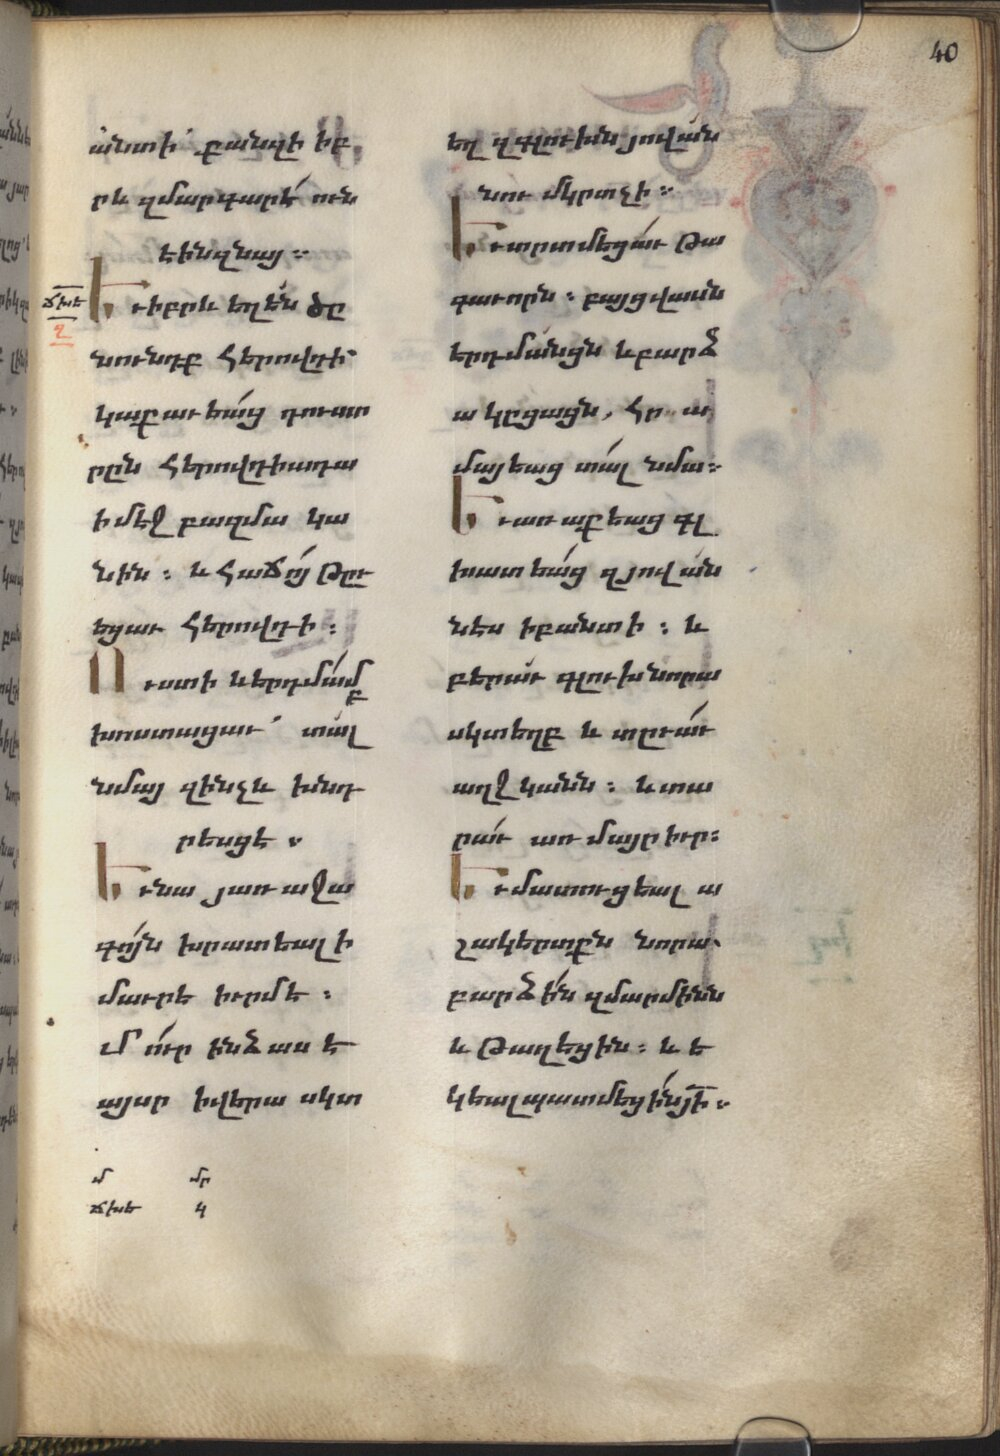 40
անտի՝ քանզի իբ
րև զմարգարէ ուն
էինզնայ ։
ճխե
Եւիբրև եղեն ծը
նունդք հերովդի՝
կաքաւեաց դուստ
րըն հերովդիադա
ի մէջ բազմա կա
նին ։ և հաճոյ թըւ
եցաւ հերովդի ։
Ուստի և երդմամբ
խոստացաւ՝ տալ
նմայ զինչև խնդ
րեսցէ ։
Եւնա յառաջա
գոյն խրատեալ ի
մաւրէ իւրմէ ։
Մ ուր ինձ աս է
այսր իվերա սկտ
եղ զգլուխն յովան
նու մկրտչի ։
Եւտրտմեցաւ թա
գաւորն ։ բայցվասն
երդմանցն և բարձ
ա կըցացն, հր ա
մայեաց տալ նմա ։
Եւառաքեաց գլ
խատեաց զյովան
նես իբանտի ։ և
բերաւ գլուխնորա
սկտեղբ և տըւաւ
աղջկանն ։ և տա
րաւ առ մայր իւր ։
Եւմատուցեալ ա
շակերտքն նորա
բարձին զմարմինն
և թաղեցին ։ և ե
կեալպատմեցինյի ։
մ մր
ճխե կ